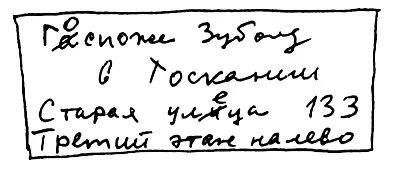 Госпоже
в Тоскании
Старая улеца 133
Третий этаж налево